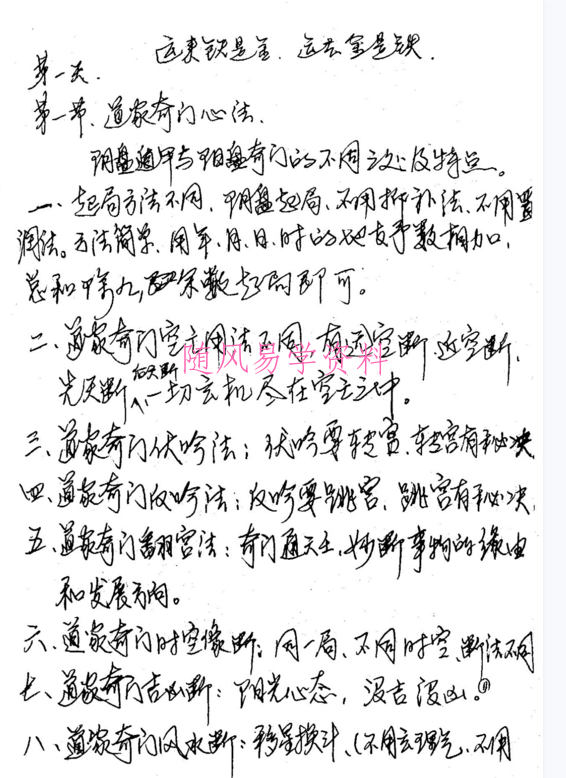 运来铁是金、运去金是铁.
第一天.
第一节、道家奇门心法.
阴盘遁甲与阳盘奇门的不同之处及特点。
一、起局方法不同、阴盘起局、不用拆补法、不用置
润法。方法简单、用年、月、日、时的地支序数相加,
总和除九,取余数起局即可。
二、道家奇门空亡用法不同、有远空断 近空断,
先天断 后天断 一切玄机尽在空亡之中。
随风易学资料
三、道家奇门伏吟法:伏吟要转宫、转宫有秘决
四、道家奇门反吟法:反吟要跳宫、跳宫有秘决,
五、道家奇门翻宫法:奇门通天主,妙断事物的缘由
和发展方向。
六、道家奇门时空像断:同一局、不同时空、断法不同
七、道家奇门吉凶断:阳光心态,没吉没凶。
八、道家奇门风水断:移星换斗、(不用玄理气、不用